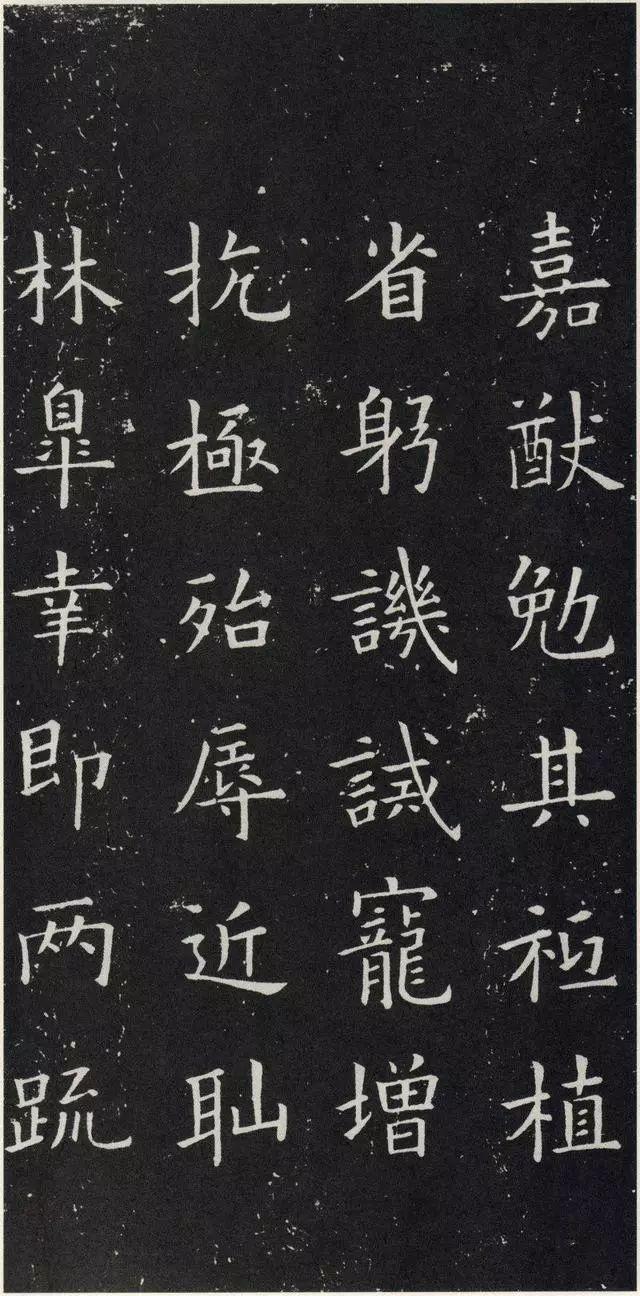 嘉猷勉其祗植
省躬譏誡寵增
抗極殆辱近耻
林皐幸即两疏